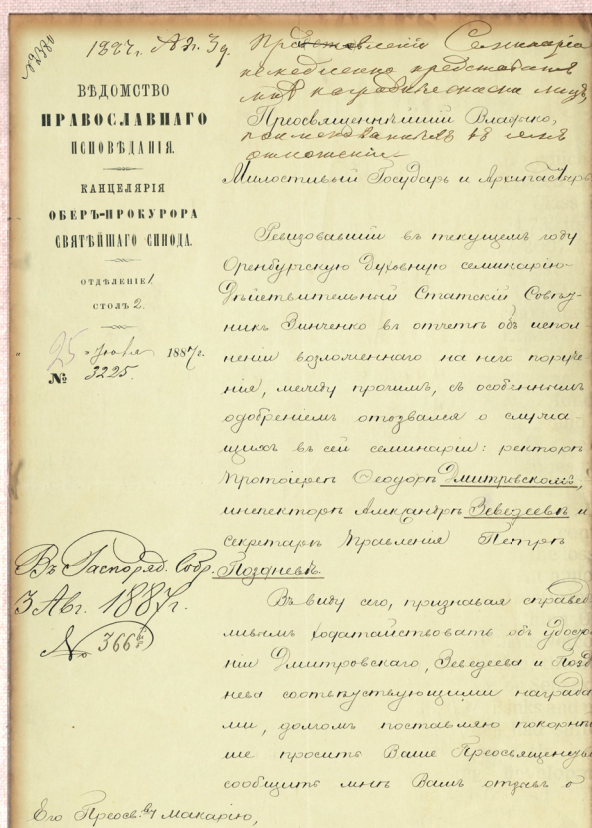 №2380
1887 г. Авг. 3 д.
Правленію Семинаріи
немедленно представить
мнѣ наградные списки лицъ,
поименованныхъ въ семъ
отношеніи
ВѢДОМСТВО
ПРАВОСЛАВНАГО
ИСПОВѢДАНІЯ.
КАНЦЕЛЯРІЯ
ОБЕРЪ-ПРОКУРОРА
СВЯТѢЙШАГО СИНОДА.
ОТДѢЛЕНІЕ 1
СТОЛЪ 2.
25 1887 г.
№ 3225.
Въ Распоряд. Собр.
3 Авг. 1887 г.
№ 366
Преосвященнѣйшій Владыко,
Милостивый Государь и Архипастырь
Ревизовавшій въ текущемъ году
Оренбургскую Духовную семинарію
Дѣйствительный Статскій Совѣт-
никъ Зинченко въ отчетѣ объ испол-
неніи возложеннаго на него поруче-
нія, между прочимъ, съ особеннымъ
одобреніемъ отозвался о служа-
щихъ въ сей семинаріи: ректорѣ
Протоіереѣ Ѳеодорѣ Дмитровскомъ,
инспекторѣ Александрѣ Зеведеевѣ и
секретарѣ Правленія Петрѣ
Позднevѣ.
Въ виду сего, признавая справед-
ливымъ ходатайствовать объ удосто
ніи Дмитровскаго, Зеведеева и Позд
нева соотвѣтствующими награда-
ми, долгомъ поставляю покорнѣй
ше просить Ваше Преосвященство
сообщить мнѣ Вашъ отзывъ о
Его Преосв-ву Макарію,